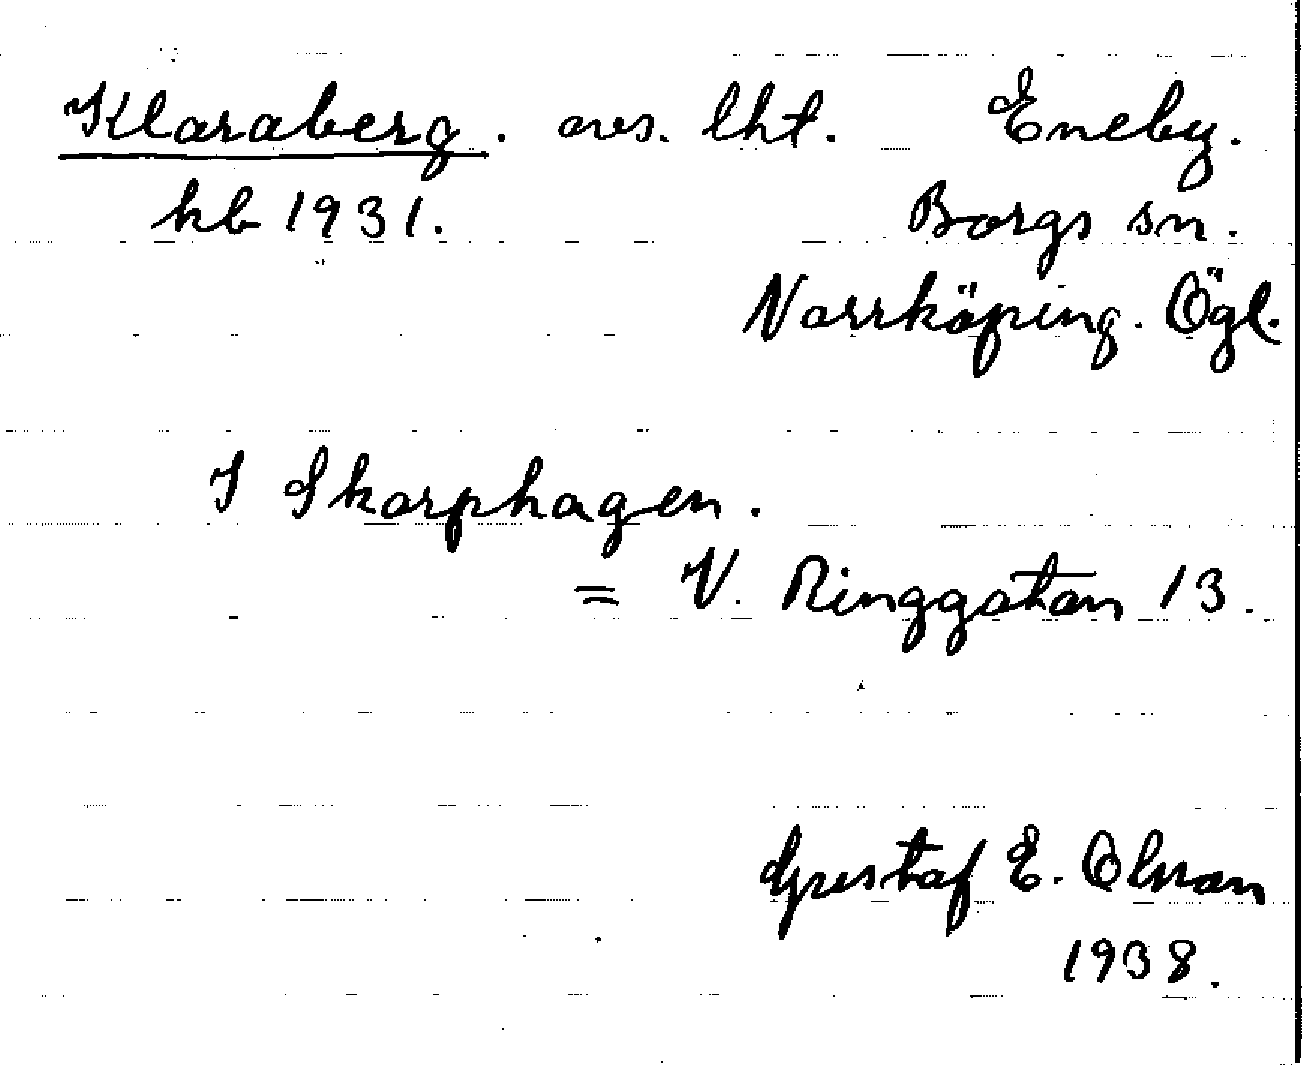 Klaraberg. avs. lht. Eneby.
kb 1931. Borgs sn.
Norrköping. Ögl.
I Skarphagen.
= V. Ringgatan 13.
Gustaf E. Olsson
1938.